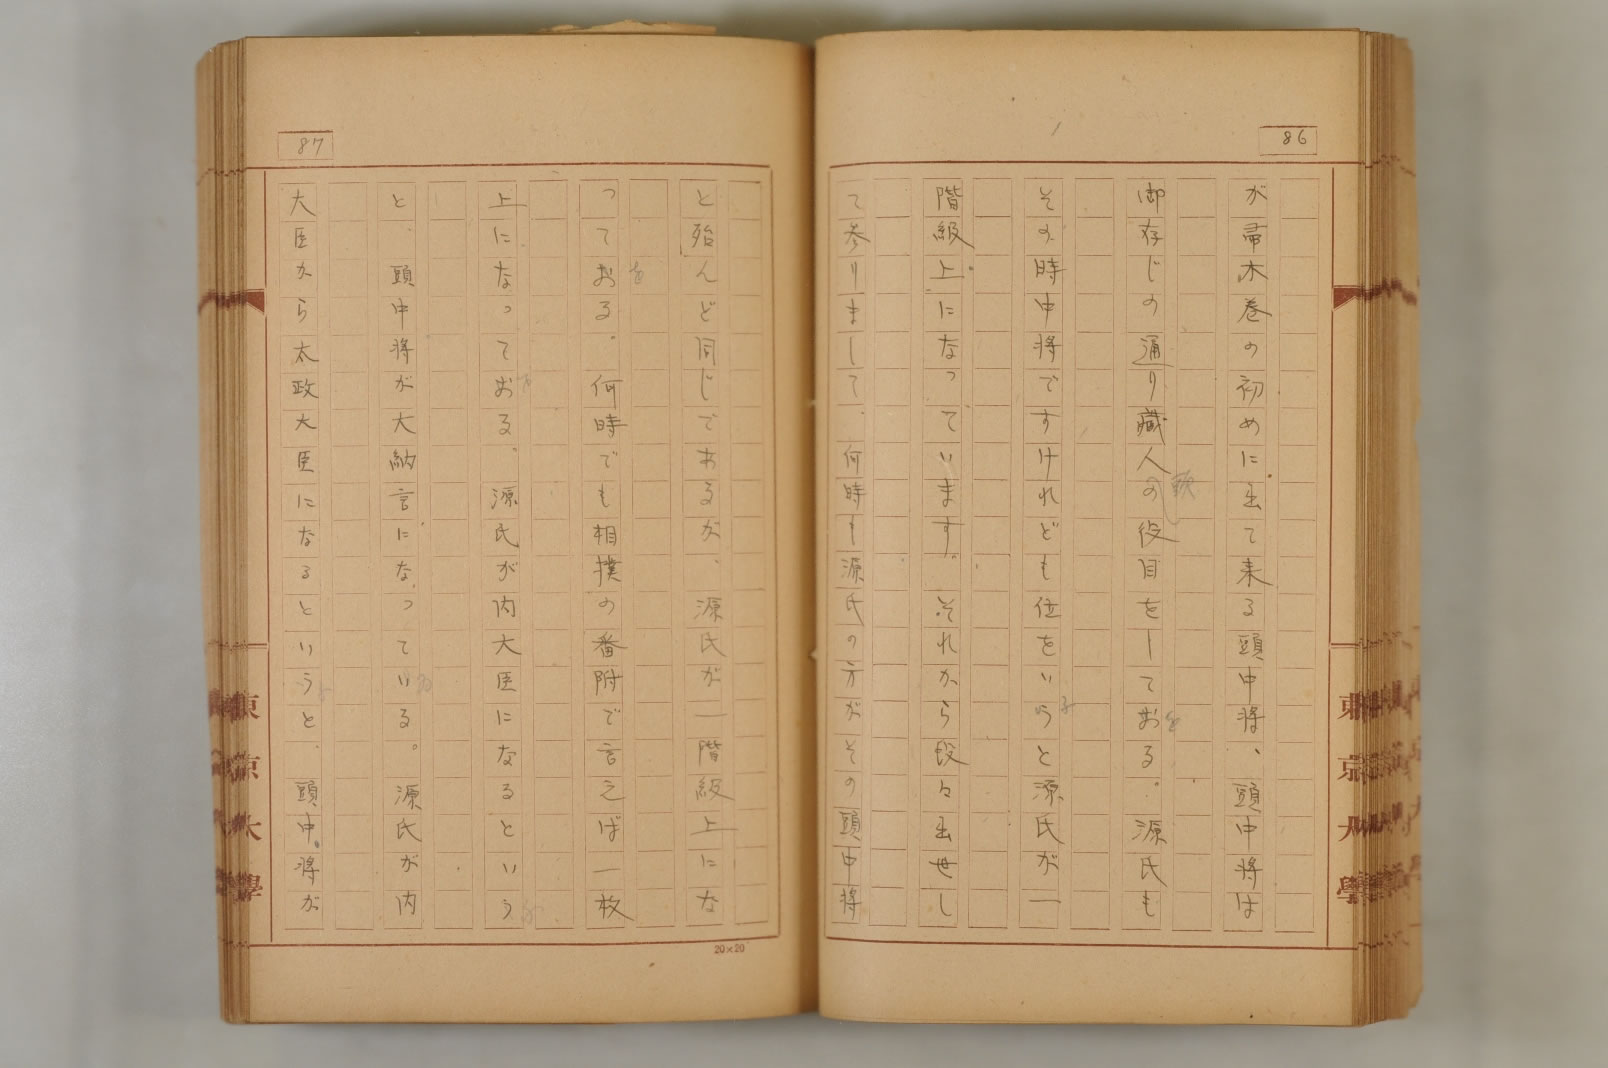 86
が帚木巻の初めに出て来る頭中将、頭中将は
御存じの通り蔵人の役目をしておる。源氏も
頭
を
その時中将ですけれども位をいうと源氏が一
ふ
階級上になっています。それから段々出世し
て参りまして、何時も源氏の方がその頭中将
87
と殆んど同じであるが、源氏が一階級上にな
っておる。何時でも相撲の番附で言えば一枚
を
上になっておる。源氏が内大臣になるという
を
ふ
と、頭中将が大納言になっている。源氏が内
ゐ
大臣から太政大臣になるというと、頭中将が
ふ
20×20
東京大學
東京大學